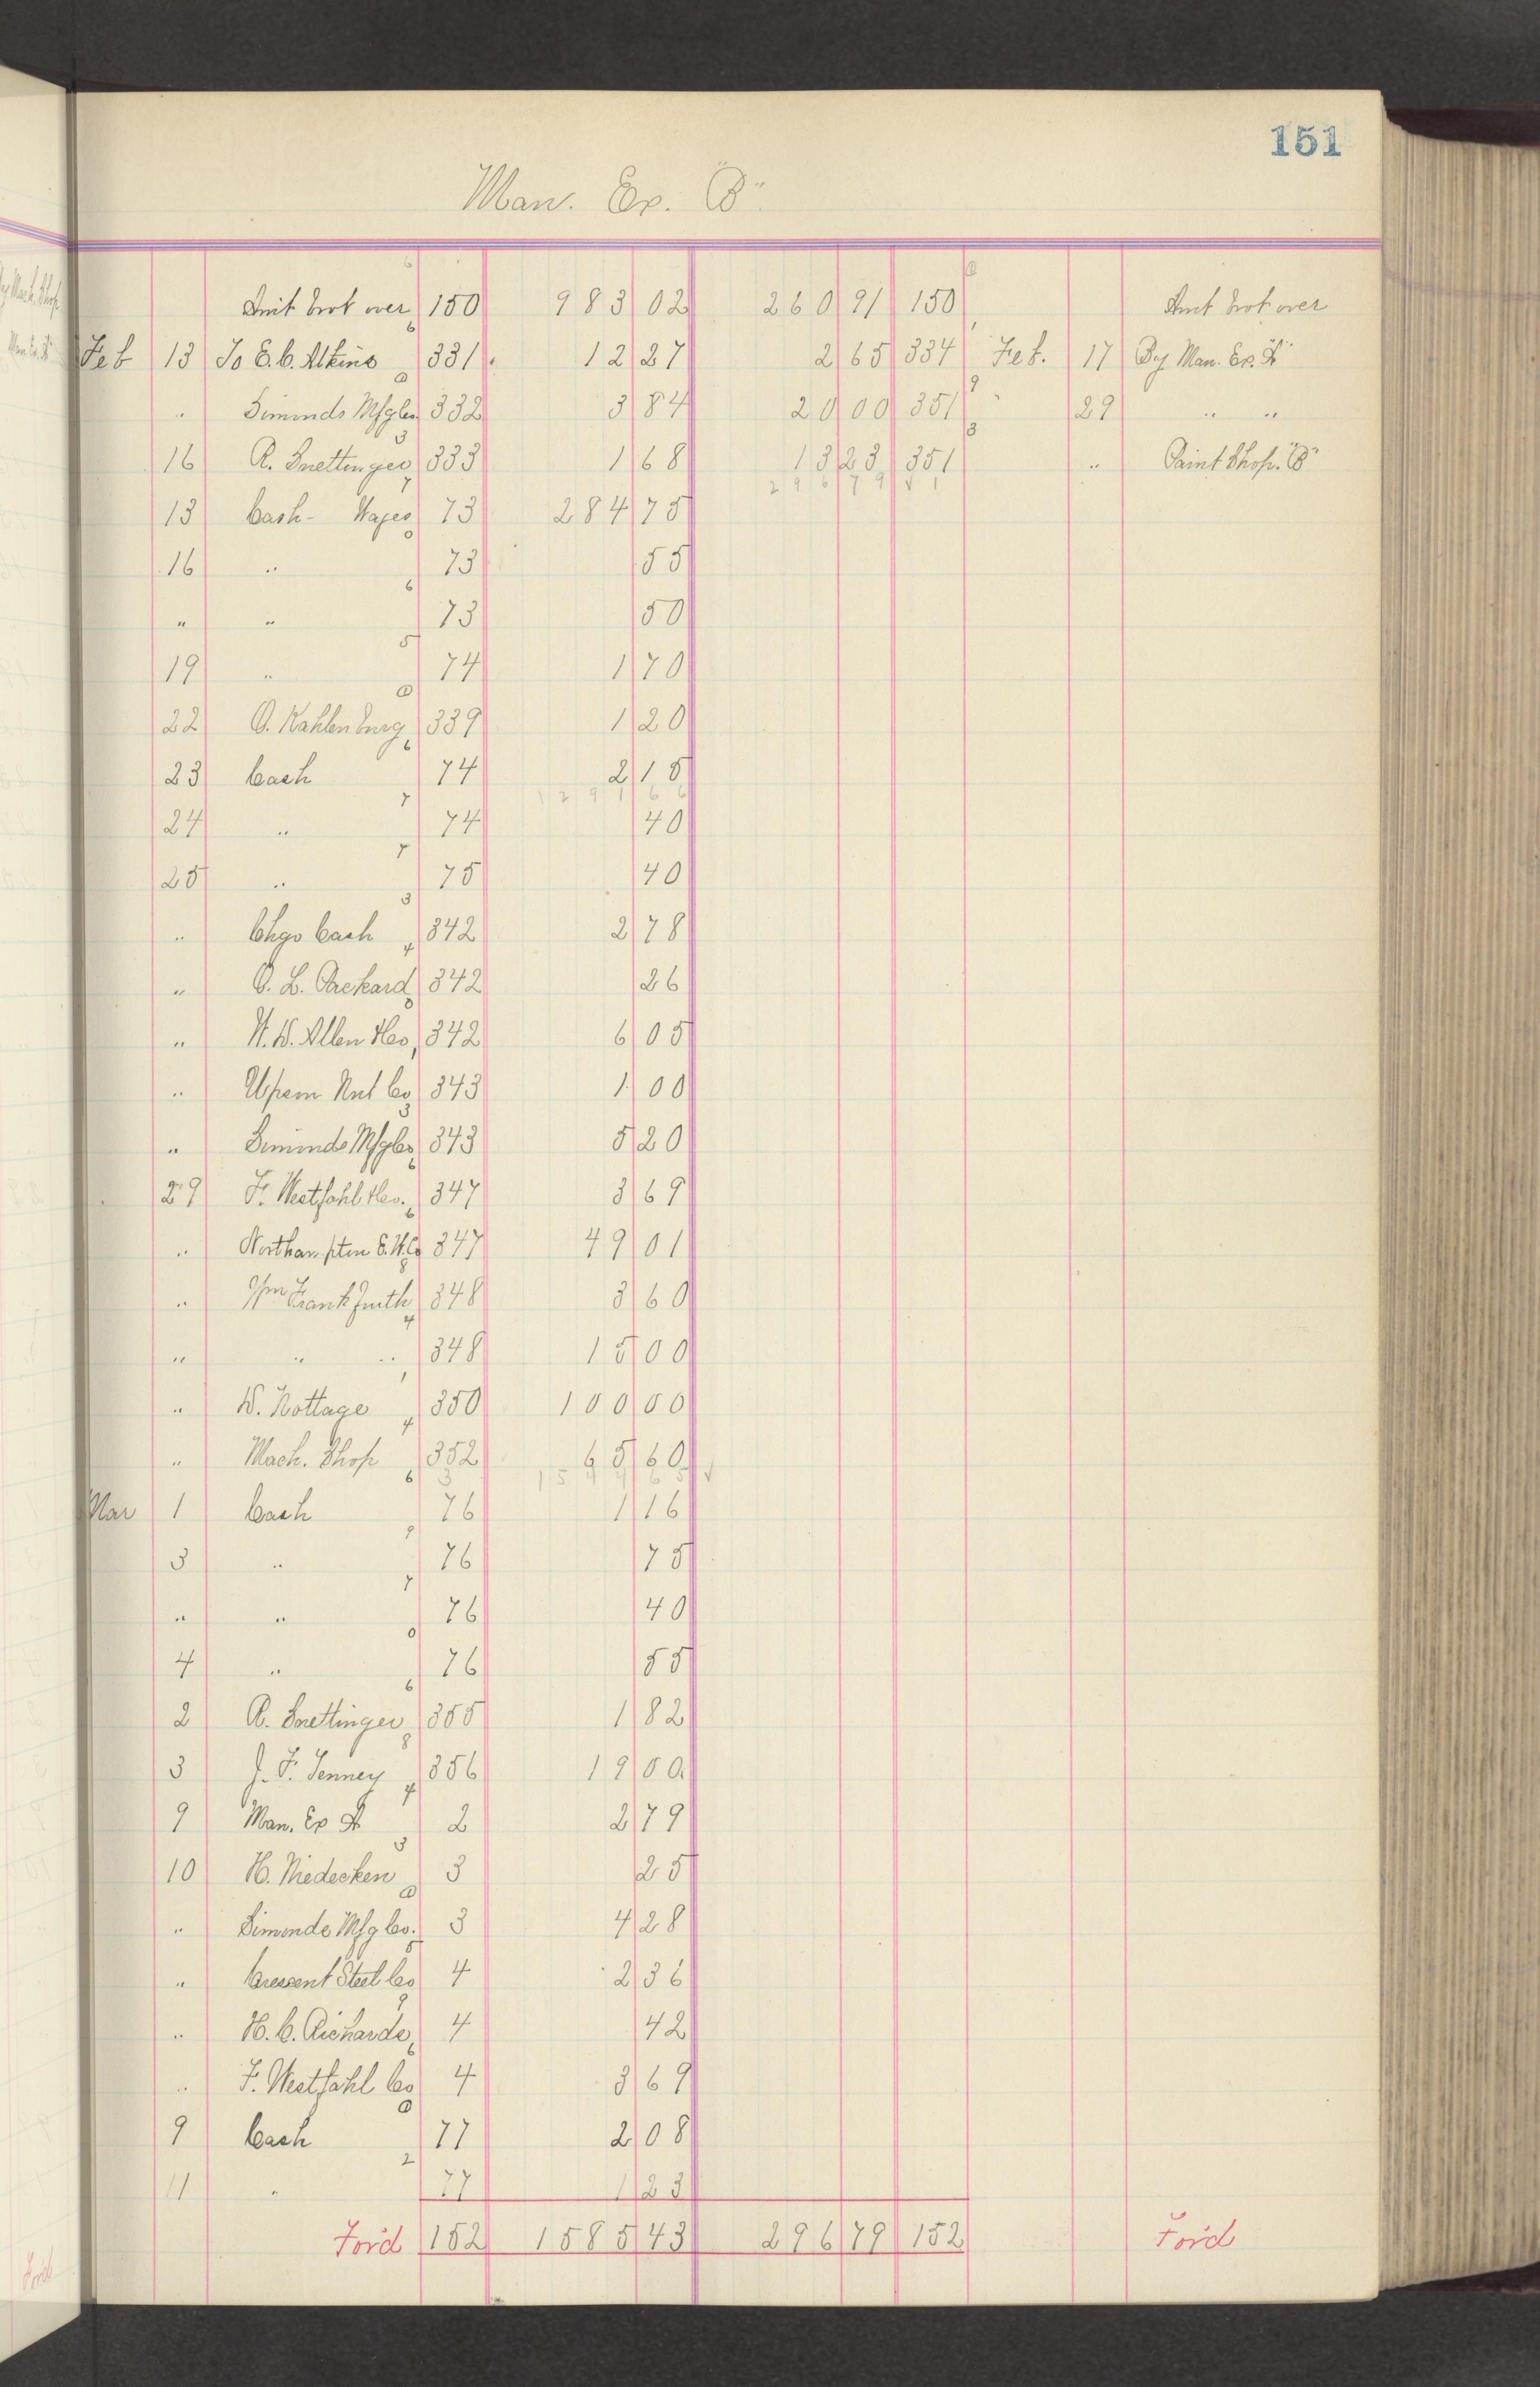 151
Man. Ex. "B"
Amt brot over 150 983 02 260 91 150 Amt brot over
Feb 13 To E. C. Atkins 331 12 27 2 65 334 Feb. 17 By Man. Ex. "A"
" Simonds Mfg Co 332 3 84 20 00 351 " 29 " "
16 R. Snettinger 333 1 68 13 23 351 " Paint Shop. "B"
296 79
13 Cash - Wages 73 284 75
16 " 73 55
" " 73 50
19 " 74 1 70
22 O. Kahlenburg 339 1 20
23 Cash 74 2 15
24 " 74 40
25 " 75 40
" Chgo Cash 342 2 78
" O. L. Packard 342 26
" W. D. Allen &Co 342 6 05
" Upsem Nut Co 343 1 00
" Simonds Mfg Co 343 5 20
29 Fr. Westfahl &Co. 347 3 69
" Northampton E. W. Co 347 49 01
" Wm Frankfurth 348 3 60
" " " 348 15 00
" W. Nottage 350 100 00
" Mach. Shop 352 65 60
Mar 1 Cash 76 1 16
3 " 76 75
" " 76 40
4 " 76 55
2 R. Snettinger 355 1 82
3 J. F. Tenney 356 19 00
9 Man. Ex A 2 2 79
10 H. Niedecken 3 25
" Simonds Mfg Co. 3 4 28
" Crescent Steel Co 4 2 36
" H. C. Richards 4 42
" F. Westfahl Co 4 3 69
9 Cash 77 2 08
11 " 77 1 23
Ford 152 1585 43 296 79 152 Ford